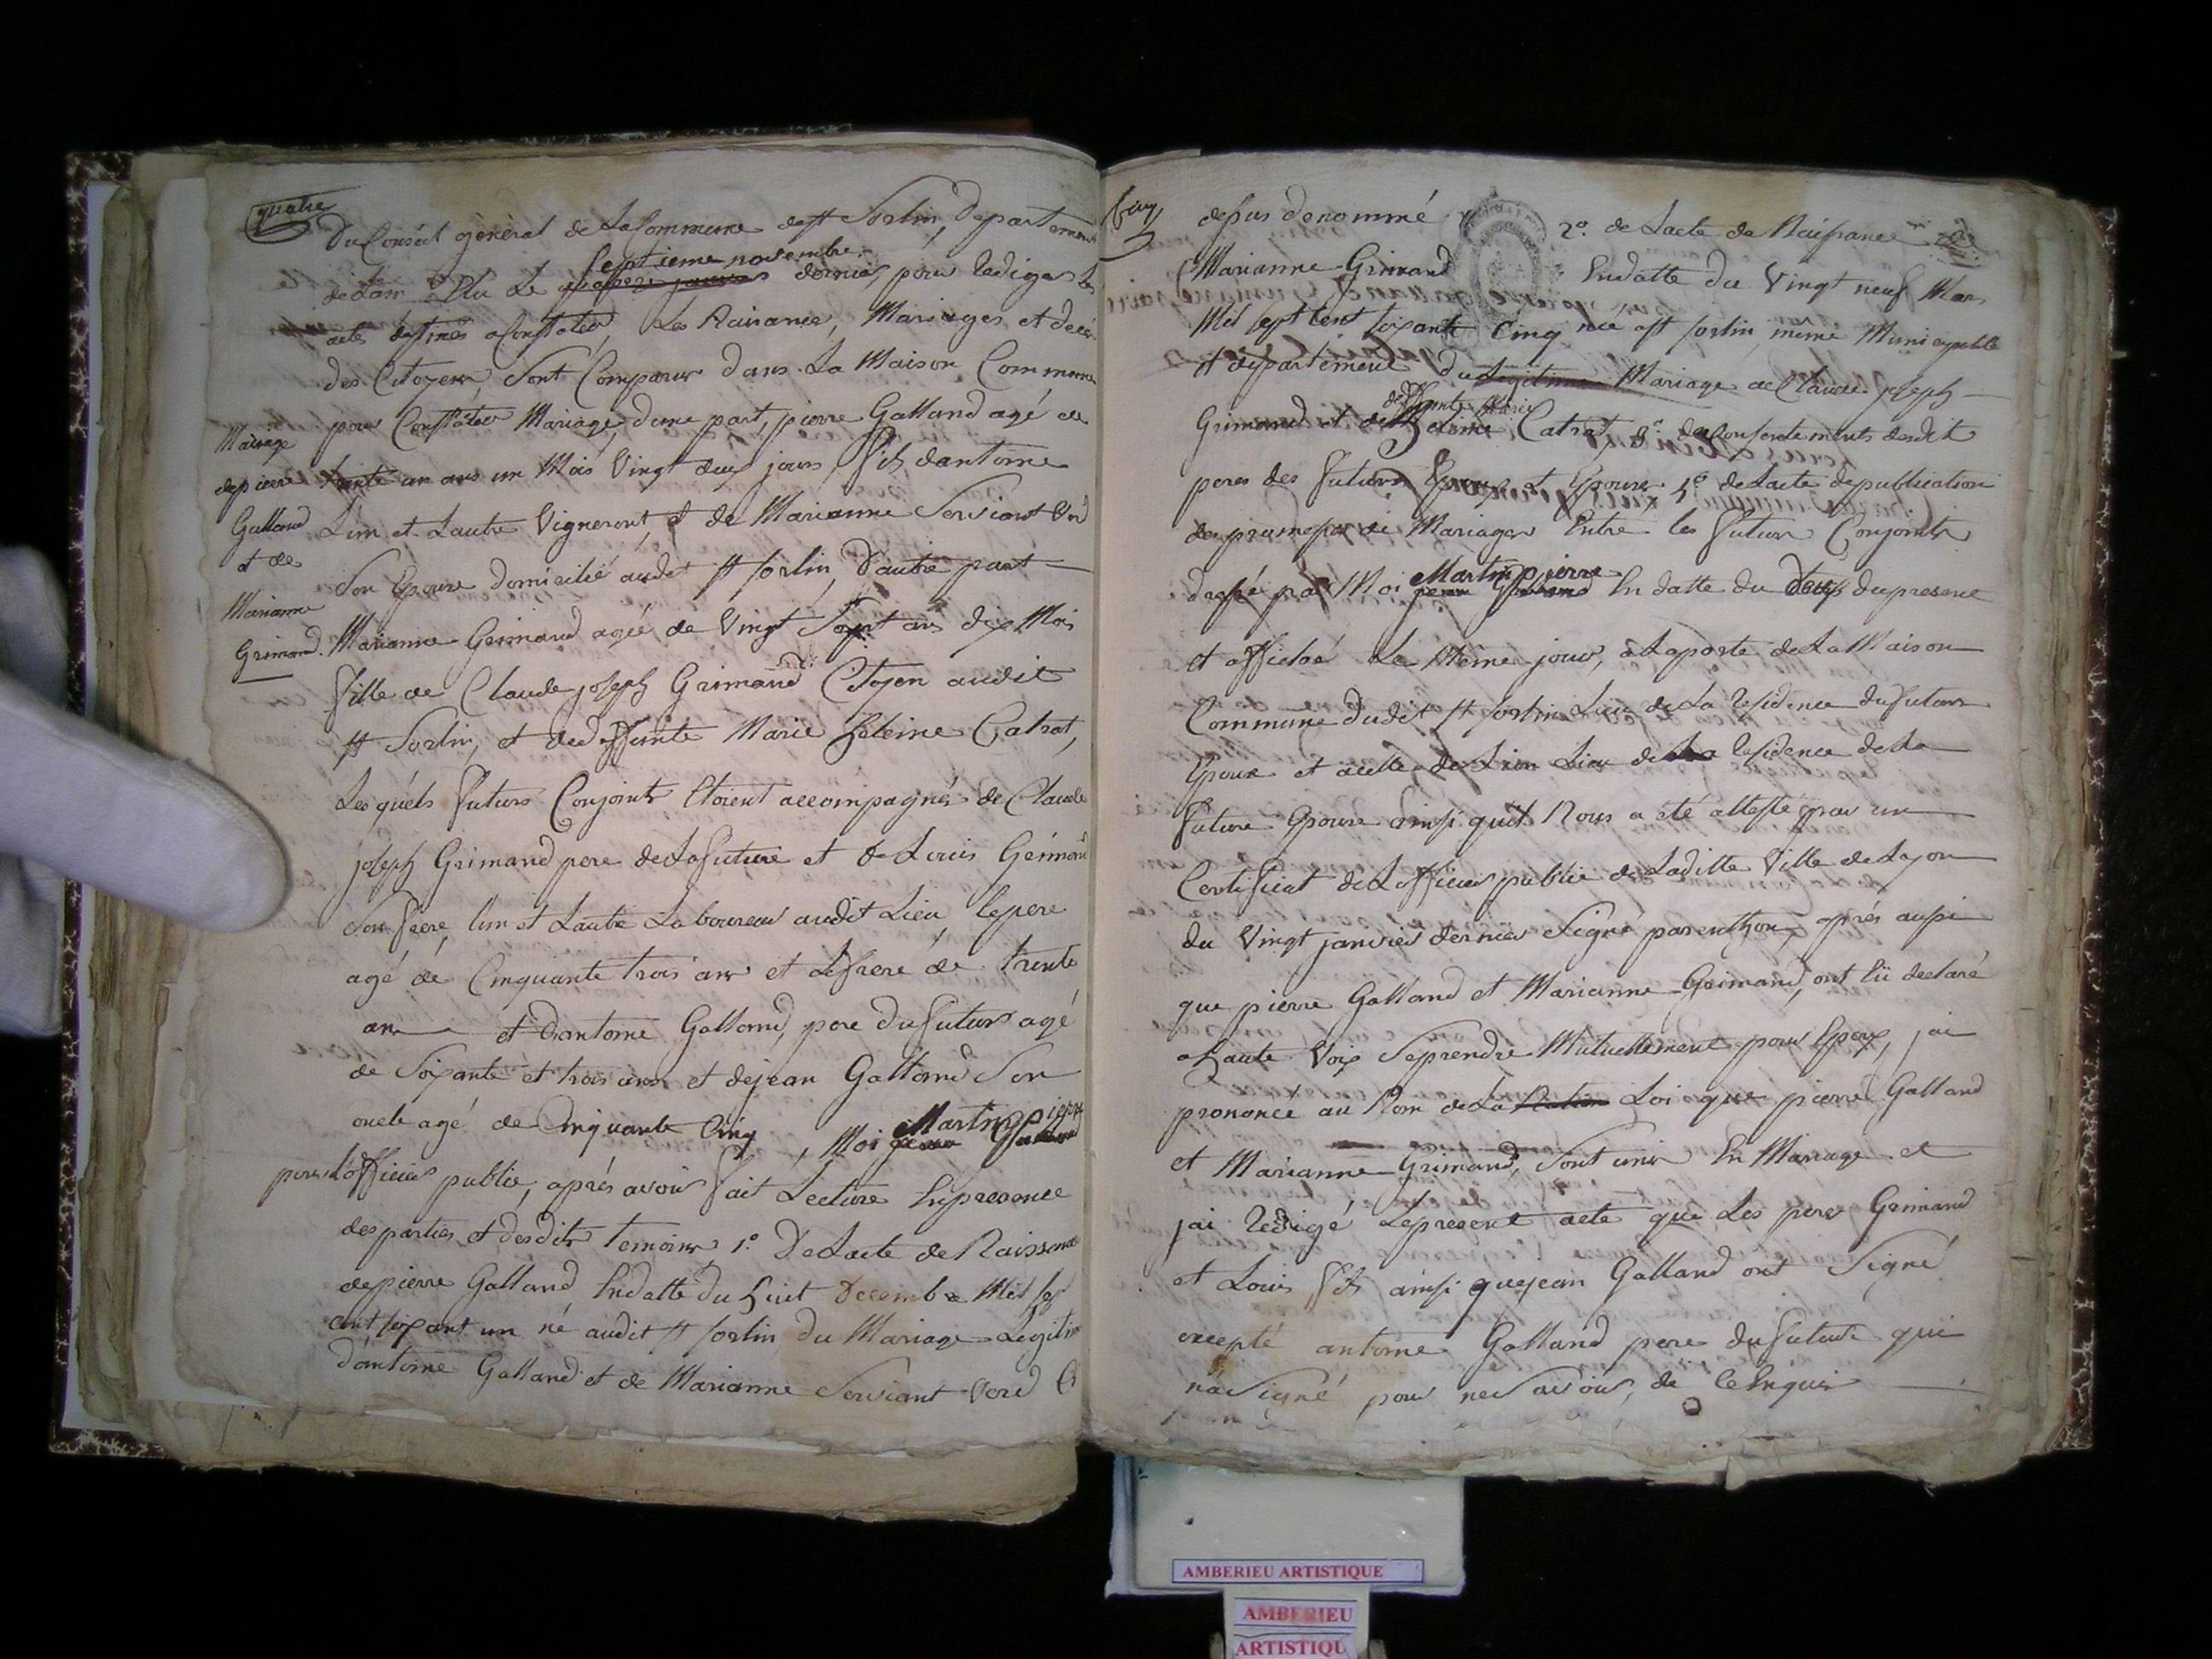 quatre
Du Conseil général de La Commune de st Sorlin, departement
septieme novembre
de Lain Elu Le dernier, pour Rediger les
actes destinés a Constater, Les Naissances, Mariages et decé
des Citoyens, Sont Comparus dans La Maison Commune
pour Constater Mariage, dune part, pierre Galland agé de
trente un ans un Mois Vingt deux jours, fils dantoine
Lun et Lautre Vigneront, et de Marianne Serviant Verd
Son Epouse domicilié audit st sorlin, D'autre part
Marianne Grimand agée de Vingt Sept ans dix Mois
fille de Claude joseph Grimand Citoyen audit
st Sorlin, et de deffunte Marie heleine Catrat,
Les quels futurs Conjoints Etoient accompagnés de Claude
joseph Grimand pere de La future et de Louis Grimand
Son frere, lun et Lautre Laboureur audit Lieu, le pere
agé de Cinquante trois ans et Le frere de trente
ans et Dantoine Galland, pere du futur agé
de Soixante et trois ans et de jean Galland Son
oncle agé de Cinquante Cinq, Moi
Martin pierre
officier public, aprés avoir fait Lecture En presence
des parties, et desdits temoins, 1.o De Lacte de Naissance
de pierre Galland En datte du huit Decembre Mil sept
cent soixant un né audit st sorlin du Mariage Legitime
d'antoine Galland et de Marianne Serviant Verd
Mariage
de pierre
Galland
et de
Marianne
Grimand
desus denommé 2.o de Lacte de Naissance
Marianne Grimand En datte du Vingt neuf Mars
Mil sept Cent soixante Cinq née a st sorlin même Municipalité
et departement du Legitime Mariage de Claude joseph
deffunte Marie
Grimand et de heleine Catrat 3.o des Consentements desdit
peres des futurs Epoux et Epouse 4.o de Lacte de publication
des promesses de Mariages Entre les futur Conjoints
Martin pierre
dressé par Moi En datte du Deux du present
et affiché Le Même jour, a La porte de La Maison
Commune dudit st sorlin Lieu de La Residence du futur
Epoux et a celle de Lion Lieu de La Residence de La
future Epouse ainsi quil Nous a été attesté par un
Certificat de L officier public de Laditte Ville de Lyon
du Vingt janvier dernier Signé parenthon, aprés aussi
que pierre Galland et Marianne Grimand, ont Eü declaré
a haute Voix Se prendre Mutuellement pour Epoux, jai
prononcé au Nom de La Loi que pierre Galland
et Marianne Grimand, Sont unis En Mariage et
jai Redigé Le present acte que Les peres Grimand
et Louis fils ainsi que jean Galland ont Signé
excepté antoine Galland pere du future qui
n'a Signé pour ne Savoir, de ce Enquis
AMBERIEU ARTISTIQUE
AMBERIEU
ARTISTIQU